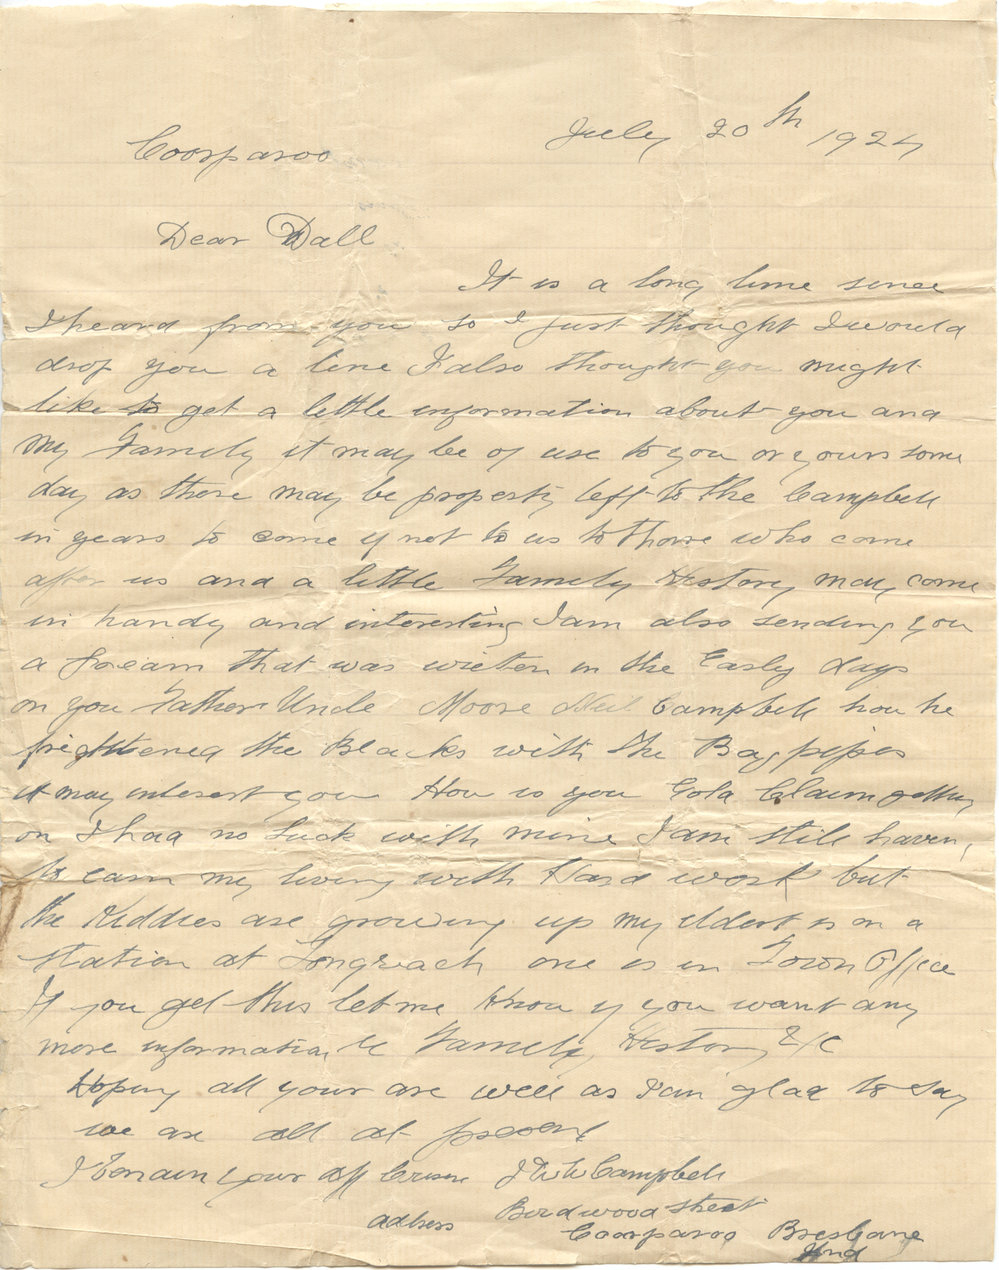 Coorparoo July 20th 1924
Dear Dall
It is a long time since
I heard from you so I just thought I would
drop you a line I also thought you might
like to get a little information about you and
My Family it may be of use to you or yours some
day as there may be property left to the Campbell
in years to come if not to us to those who come
after us and a little Family History may come
in handy and interesting I am also sending you
a that was in the Early days
on you Father Uncle Moore Neil Campbell how he
frightened the Blacks with the Bagpipes
it may interest you How is you Gold Claim getting
on I had no luck with mine I am still haven,
to earn my living with Hard work but
the Kiddies are growing up my eldest is on a
station at Longreach one is in Town Office
If you get this let me Know if you want any
more information Family History
Hoping all your are well as I'm glad to say
we are all at present
I Remain your aff J Campbell
address Birdwood Street
Coorparoo Brisbane